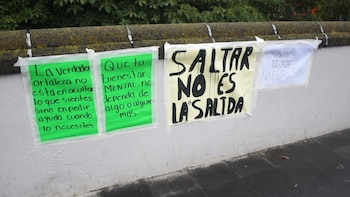 La Verdadera
fortaleza no
está en ocultar
lo que sientes
sino en pedir
ayuda cuando
lo necesites
Que tu
bienestar
MENTAL no
dependa de
algo o alguien
mas.
SALTAR
NO ES
LA SALIDA